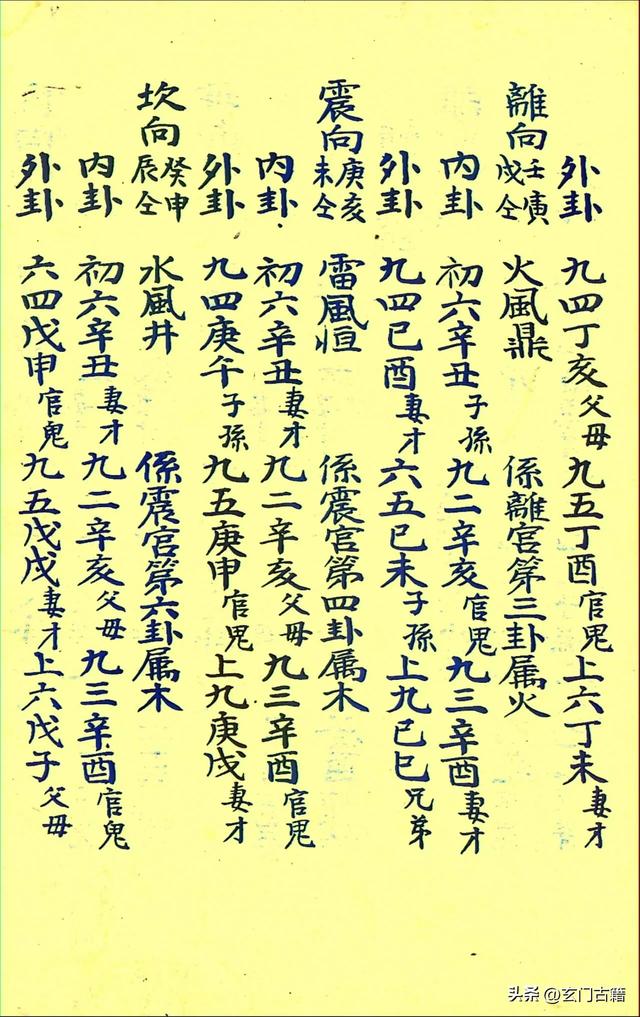 外卦 九四丁亥父母九五丁酉官鬼上六丁未妻才
離向壬寅戌仝 火風鼎 係離宮第三卦属火
内卦 初六辛丑子孫九二辛亥官鬼九三辛酉妻才
外卦 九四已酉妻才六五已未子孫上九已巳兄弟
震向庚亥未仝 雷風恒 係震宮第四卦属木
内卦 初六辛丑妻才九二辛亥父母九三辛酉官鬼
外卦 九四庚午子孫九五庚申官鬼上九庚戌妻才
坎向癸申辰仝 水風井 係震宮第六卦属木
内卦 初六辛丑妻才九二辛亥父母九三辛酉官鬼
外卦 六四戊申官鬼九五戊戌妻才上六戊子父母
头条 @玄门古籍